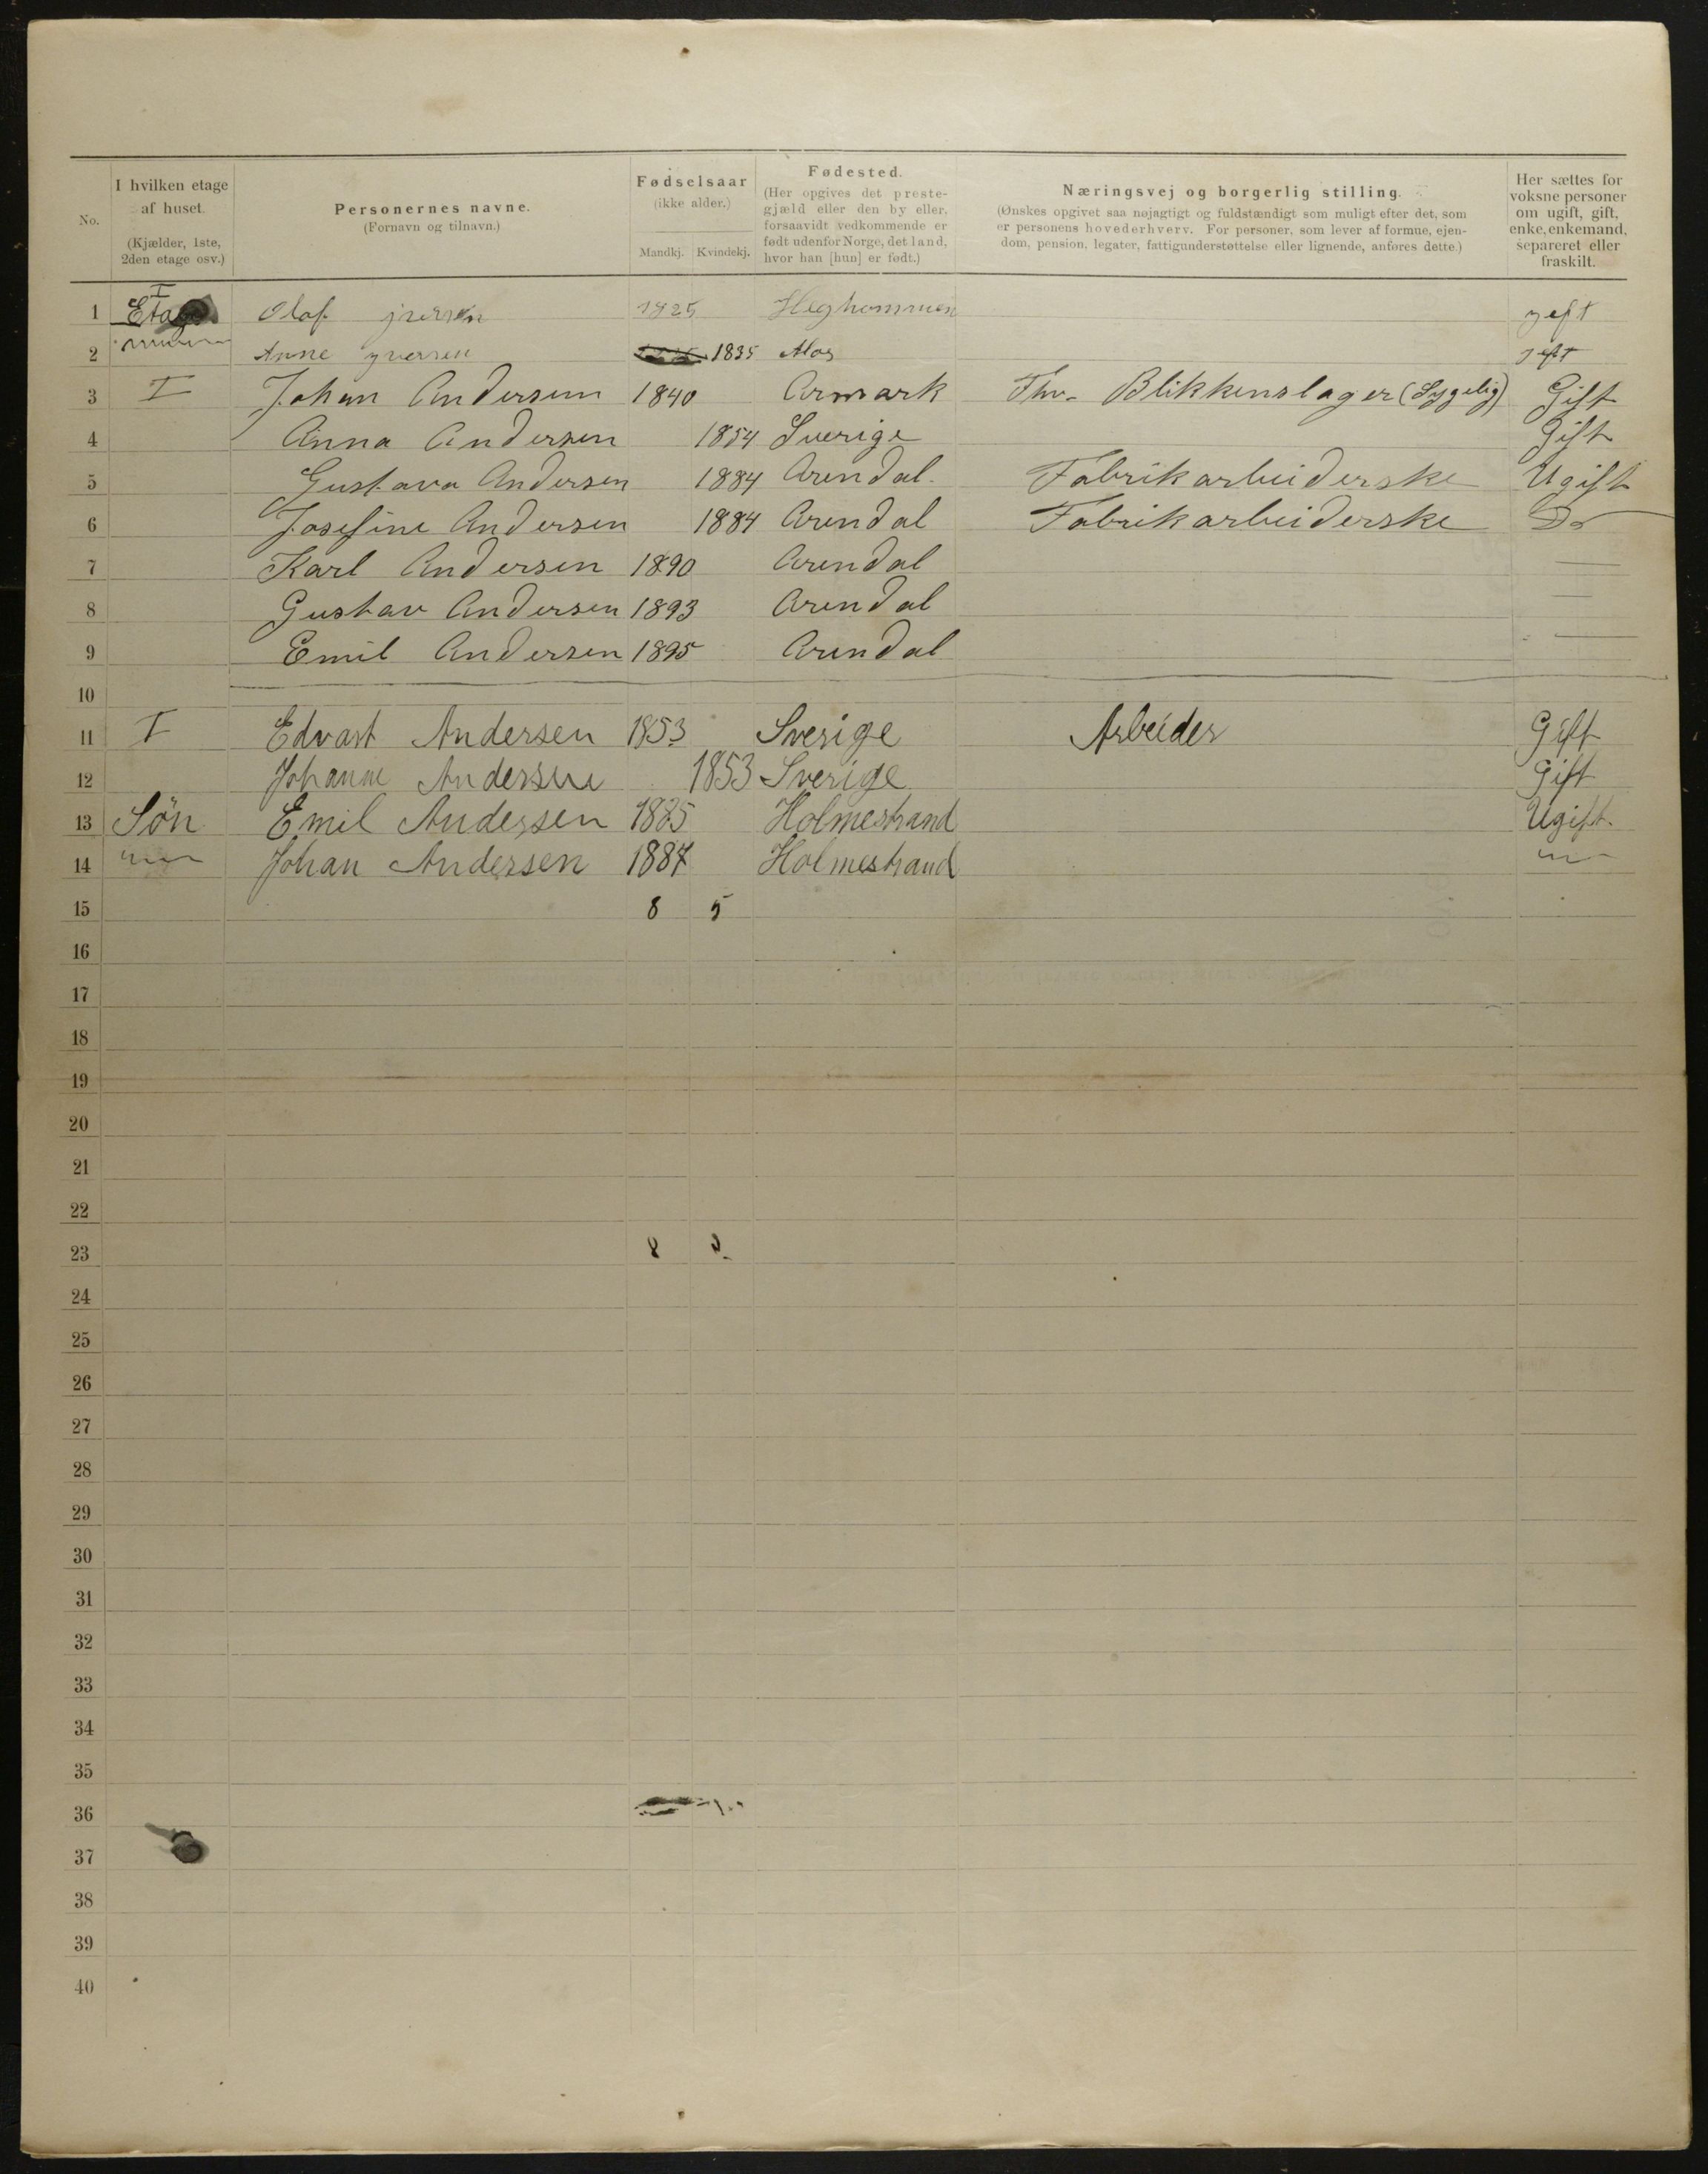 No.
I hvilken etage af huset.
(Kjælder, 1ste, 2den etage osv.)
Personernes navne.
(Fornavn og tilnavn.)
Fødselsaar
(ikke alder.)
Mandkj. Kvindekj.
Fødested.
(Her opgives det preste-
gjæld eller den by eller,
forsaavidt vedkommende er
født udenfor Norge, det land,
hvor han [hun] er født.)
Næringsvej og borgerlig stilling.
(Ønskes opgivet saa nøjagtigt og fuldstændigt som muligt efter det, som
er personens hovederhverv. For personer, som lever af formue, ejen-
dom, pension, legater, fattigunderstøttelse eller lignende, anføres dette.)
Her sættes for
voksne personer
om ugift, gift,
enke, enkemand,
separeret eller
fraskilt.
I
1 Etage Olaf 1825 gift
2 Anne 1835 Mos gift
3 I Johan Andersen 1840 Armark Fhv. Blikkenslager (Sygelig) Gift
4 Anna Andersen 1854 Sverige Gift
5 Gustava Andersen 1884 Arendal. Fabrikarbeiderske Ugift
6 Josefine Andersen 1884 Arendal Fabrikarbeiderske Do
7 Karl Andersen 1890 Arendal
8 Gustav Andersen 1893 Arendal
9 Emil Andersen 1895 Arendal
10
11 I Edvart Andersen 1853 Sverige Arbeider Gift
12 Johanne Andersen 1853 Sverige Gift
13 Sön Emil Andersen 1885 Holmestrand Ugift.
14 Johan Andersen 1887 Holmestrand
15 8 5
16
17
18
19
20
21
22
23
24
25
26
27
28
29
30
31
32
33
34
35
36
37
38
39
40